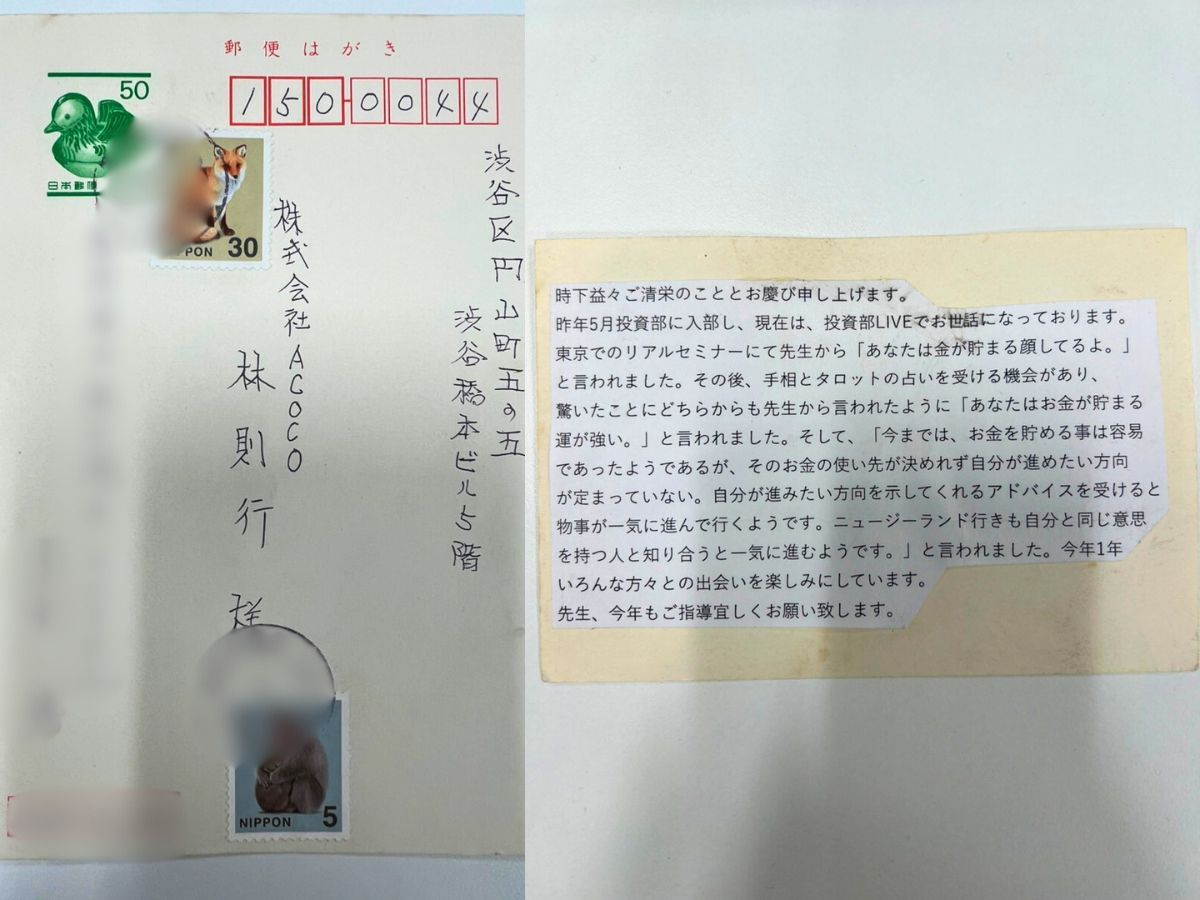 郵便はがき
50
日本郵便
150-0044
渋谷区円山町五の五
渋谷橋本ビル5階
株式会社ACOCO
林則行 様
30
NIPPON
5
時下益々ご清栄のこととお慶び申し上げます。
昨年5月投資部に入部し、現在は、投資部LIVEでお世話になっております。
東京でのリアルセミナーにて先生から「あなたは金が貯まる顔してるよ。」
と言われました。その後、手相とタロットの占いを受ける機会があり、
驚いたことにどちらからも先生から言われたように「あなたはお金が貯まる
運が強い。」と言われました。そして、「今までは、お金を貯める事は容易
であったようであるが、そのお金の使い先が決めれず自分が進めたい方向
が定まっていない。自分が進みたい方向を示してくれるアドバイスを受けると
物事が一気に進んで行くようです。ニュージーランド行きも自分と同じ意思
を持つ人と知り合うと一気に進むようです。」と言われました。今年1年
いろんな方々との出会いを楽しみにしています。
先生、今年もご指導宜しくお願い致します。